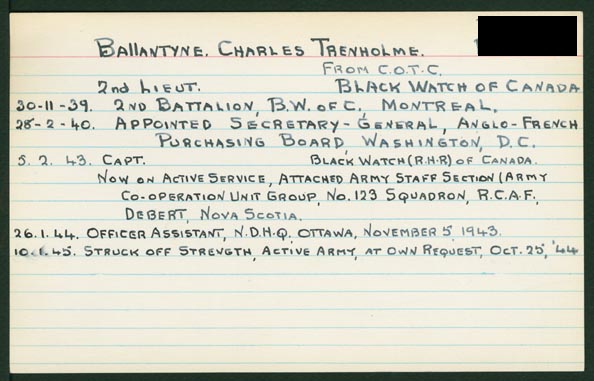 BALLANTYNE, CHARLES TRENHOLME.
FROM C.O.T.C.
2nd LIEUT. BLACK WATCH OF CANADA
30-11-39. 2ND BATTALION, B.W. OF C. MONTREAL.
28-2-40. APPOINTED SECRETARY-GENERAL, ANGLO-FRENCH
PURCHASING BOARD, WASHINGTON, D.C.
5.2.43. CAPT. BLACK WATCH (R.H.R) OF CANADA.
NOW ON ACTIVE SERVICE, ATTACHED ARMY STAFF SECTION (ARMY
CO-OPERATION UNIT GROUP, No. 123 SQUADRON, R.C.A.F.,
DEBERT, NOVA SCOTIA.
26.1.44. OFFICER ASSISTANT, N.D.H.Q. OTTAWA, NOVEMBER 5, 1943.
10.1.45. STRUCK OFF STRENGTH, ACTIVE ARMY, AT OWN REQUEST, OCT. 25, '44